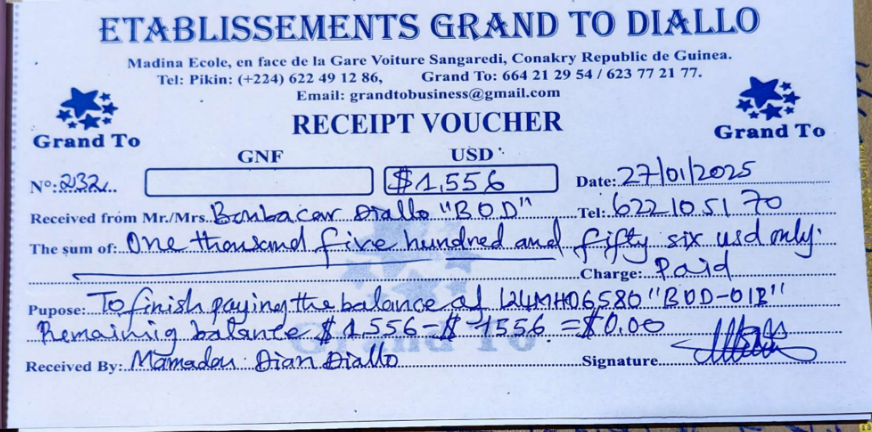 ETABLISSEMENTS GRAND TO DIALLO
Madina Ecole, en face de la Gare Voiture Sangaredi, Conakry Republic de Guinea.
Tel: Pikin: (+224) 622 49 12 86, Grand To: 664 21 29 54 / 623 77 21 77.
Email: grandtobusiness@gmail.com
Grand To
RECEIPT VOUCHER
Grand To
GNF USD
N°: 232 $1,556 Date: 27/01/2025
Received from Mr./Mrs. Boubacar Diallo "BOD" Tel: 622 10 51 70
The sum of: One thousand five hundred and fifty six usd only.
Charge: Paid
Pupose: To finish paying the balance of "BOD-01B"
Remaining balance $1.556-$-1556 = $0.00
Grand To
Received By: Mamadou Dian Diallo Signature